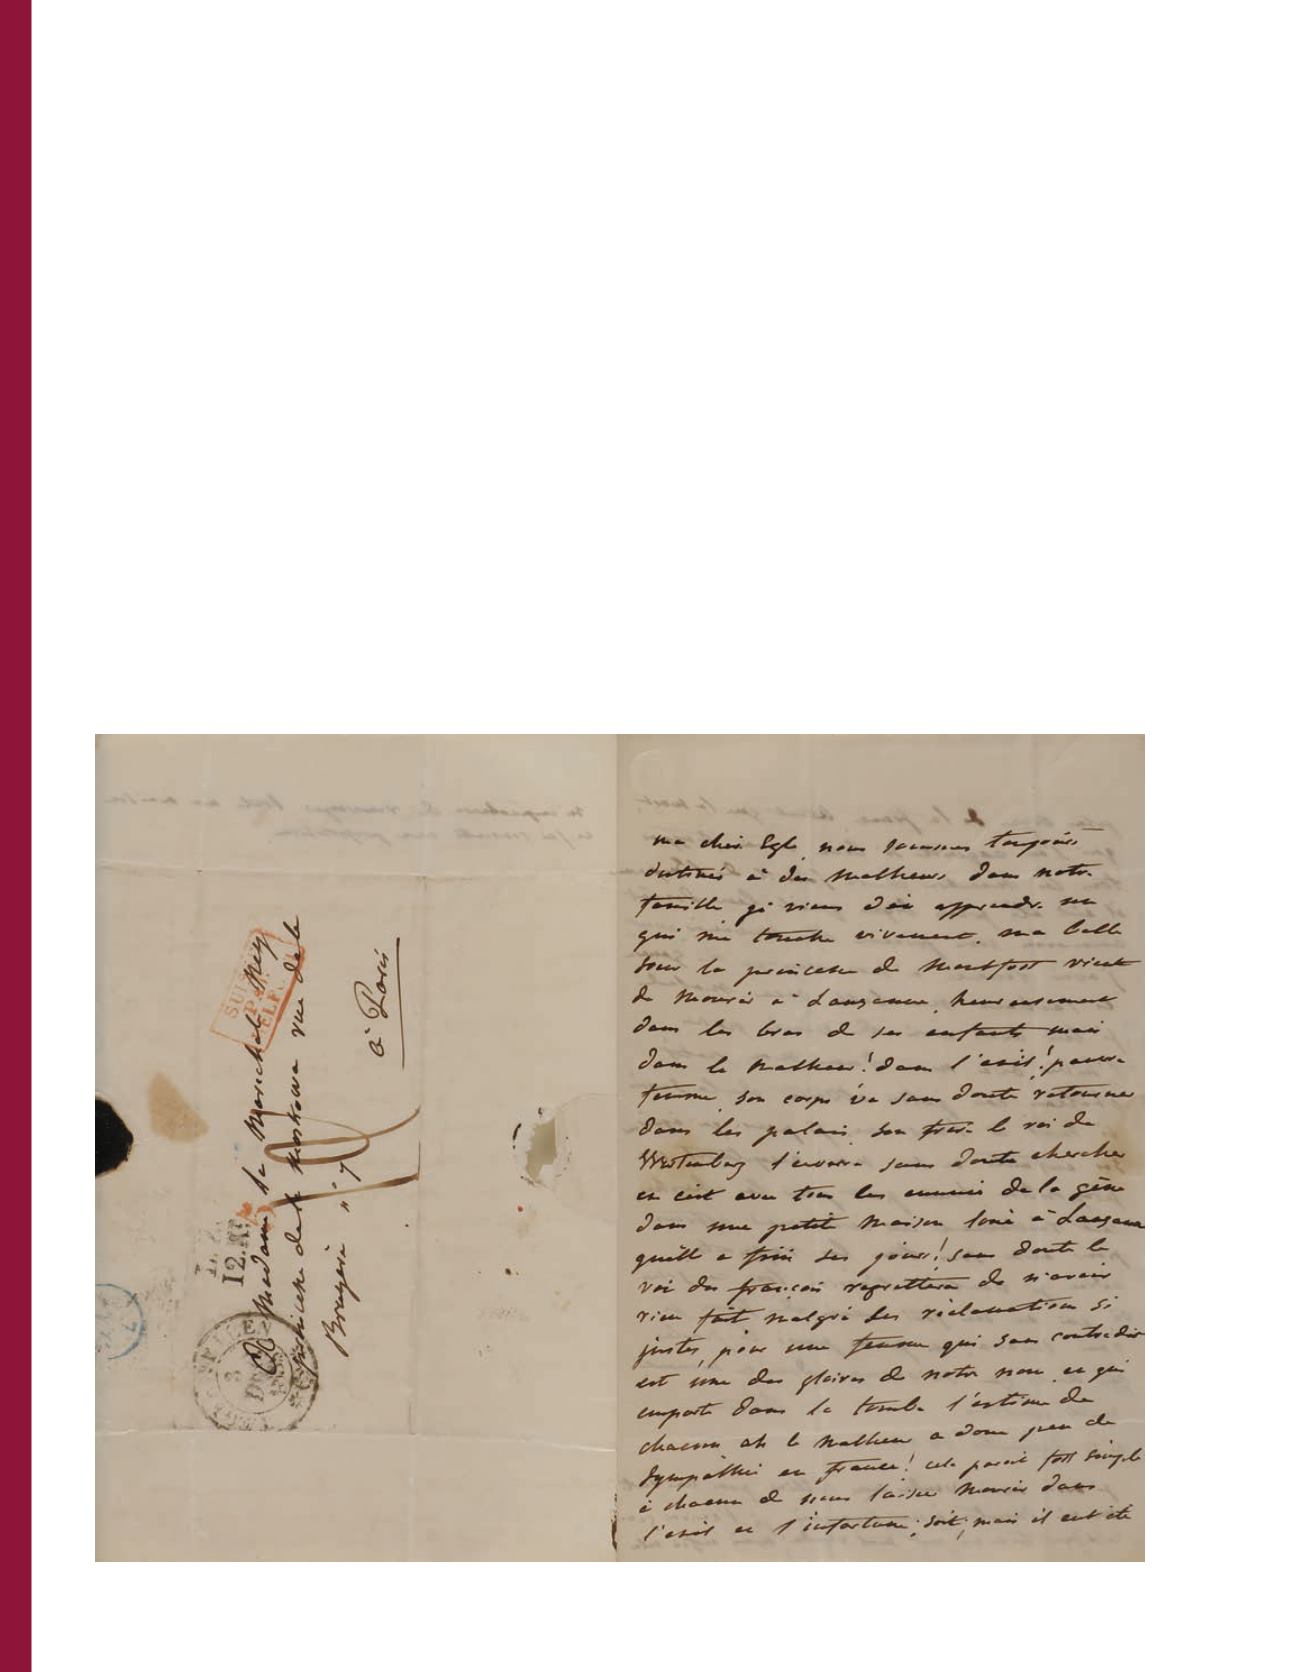 Madame la Marechale Ney
princesse de la Moskowa rue de la
Bruyere n° 7
à Paris
SUI
12
ma cher Egle, nous sommes toujours
destinés à des malheurs dans notre
famille je viens d'en apprendre un
qui me touche vivement. ma belle
soeur la princesse de Montfort vient
de mourir a Lausanne, heureusement
dans les bras de ses enfants mais
dans le malheur! dans l'exil! pauvre
femme, son corps va sans doute retourner
dans les palais, son frere le roi de
l'enverra sans doute chercher
et c'est avec tous les ennuis de la gêne
dans une petite maison loué à Lausanne
quelle a fini ses jours! sans doute le
roi des françois regrettera de n'avoir
rien fait malgré les réclamations si
justes, pour une femme qui sans contredit
est une des gloires de notre nom et qui
emporte dans la tombe l'estime de
chacun ah le malheur a donc peu de
sympathie en france! cela parait fort simple
à chacun de nous laisser mourir dans
l'exil et l'infortune; soit, mais il eut été